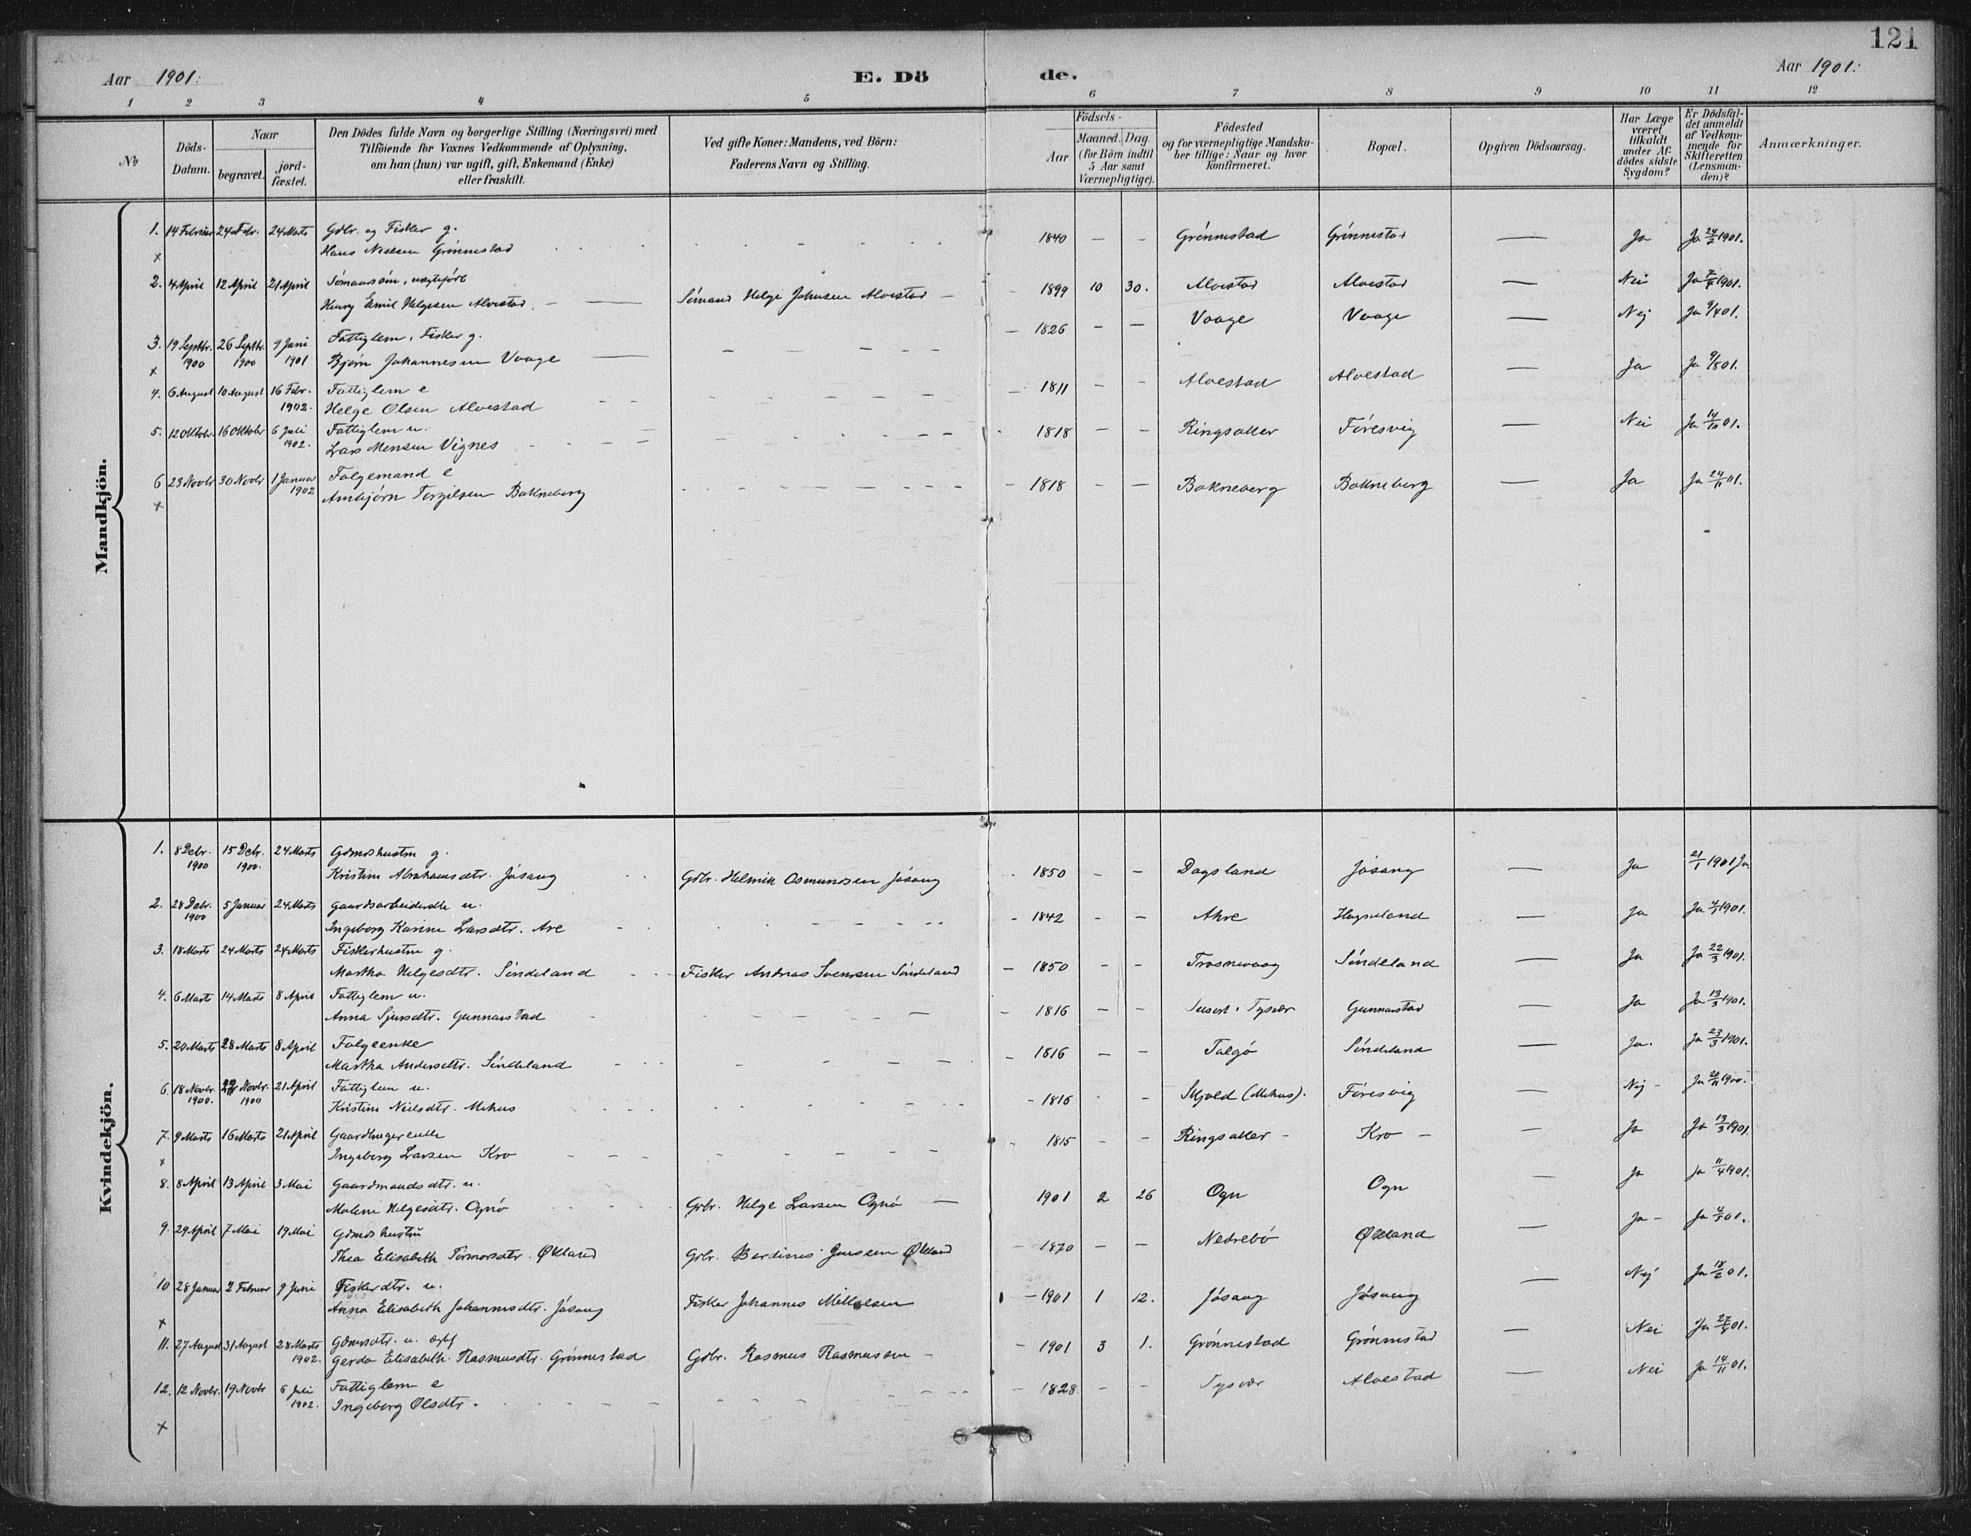 121
Aar 1901. E. Dö de. Aar 1901.
1 2 3 4 5 6 7 8 9 10 11 12
No
Döds-Datum.
Naar
begravet.
jord-fæstet.
Den Dödes fulde Navn og borgerlige Stilling (Næringsvei) med
Tilföiende for Voxnes Vedkommende af Oplysning,
om han (hun) var ugift, gift, Enkemand (Enke)
eller fraskilt.
Ved gifte Koner: Mandens, ved Börn:
Faderens Navn og Stilling.
Födsels-
Aar
Maaned. Dag.
(for Börn indtil
5 Aar samt
Værnepligtige).
Födested
og for værnepligtige Mandska-
ber tillige: Naar og hvor
konfirmeret.
Bopæl.
Opgiven Dödsaarsag.
Har Læge
været
tilkaldt
under Af-
dödes sidste
Sygdom?
Er Dödsfal-
det anmeldt
af Vedkom-
mende for
Skifteretten
(Lensman-
den)?
Anmærkninger.
Mandkjön.
1. 14 Februar 24 Febr. 24 Marts Gdbr. og Fisker g.
Hans Nielsen Grönnestad 1840 — — Grönnestad Grönnestad — Ja Ja 24/2 1901.
2. 4 April 12 April 21 April Sömandssön, uægtefödt
Henry Emil Helgesen Alvestad Sömand Helge Johnsen Alvestad 1899 10 30. Alvestad Alvestad — Nei Ja 1901.
3. 19 Septbr. 1900 26 Septbr. 1900 9 Juni 1901 Fattiglem, Fisker g.
Bjørn Johannesen Vaage 1826 — — Vaage Vaage — Nej Ja 9/4 01.
4. 6 August 10 August 16 Febr. 1902. Fattiglem e
Helge Olsen Alvestad 1811 — — Alvestad Alvestad — Ja Ja 9/8 01.
5. 12 Oktobr 16 Oktobr 6 Juli 1902. Fattiglem u.
Lars Monsen Vignes 1818 — — Ringsaker Föresvig — Nei Ja 14/10 01.
6 23 Novbr 30 Novbr 1 Januar 1902 Folgemand e
Ambjørn Torgilsen Bokneberg 1818 — — Bokneberg Bokneberg — Ja Ja 24/11 01.
Kvindekjön.
1. 8 Debr. 1900 15 Debr. 1900. 24 Marts Gdmdshustru g.
Kristine Abrahamsdtr. Jösang Gdbr. Helmik Osmundsen Jösang 1850 — — Dagsland Jösang — Ja 21/1 1901 Ja
2. 28 Debr. 1900 5 Januar 24 Marts Gaardsarbeiderske u.
Ingeborg Karine Larsdtr. Are 1842 — — Akre Hogneland — Ja Ja 1901.
3. 18 Marts 24 Marts 24 Marts Fiskerhustru g.
Martha Helgesdtr. Söndeland Fisker Andreas Svensen Söndeland 1850 — — Trosnavaag Söndeland — Ja Ja 22/3 1901.
4. 6 Marts 14 Marts 8 April Fattiglem u.
Anna Sjursdtr. Gunnarstad 1816 — — Tysvær Gunnarstad — Ja Ja 13/3 1901.
5. 20 Marts 28 Marts 8 April Folgeenke
Martha Andersdtr. Söndeland 1816 — — Talgö Söndeland — Ja. Ja 23/3 1901.
6 18 Novbr. 1900. Novbr. 1900 21 April Fattiglem u.
Kristine Nielsdtr. Mehus 1816 Skjold (Mehus). Föresvig — Nej Ja 1900.
7. 9 Marts 16 Marts 21 April
Ingeborg Larsen Kro 1815 — — Ringsaker Kro — Ja Ja 13/3 1901
8. 8 April 13 April 3 Mai Gaardmandsdtr. u.
Malene Helgesdtr. Ognö Gdbr. Helge Larsen Ognö 1901 2 26 Ogn Ogn — Ja Ja 11/4 1901.
9. 29 April 7 Mai 19 Mai Gdmdshustru
Thea Elisabeth Tormodsdtr. Økland Gdbr. Berdines Jonssen Økland 1870 — — Nedrebö Økland — Ja Ja 4/5 01.
10 28 Januar 2 Februar 9 Juni Fiskerdtr. u.
Anna Elisabeth Johannesdtr. Jösang Fisker Johannes Mikkelsen 1901 1 12. Jösang Jösang — Nej Ja 01.
11. 27 August 31 August 28 Marts 1902. Gdmdsdtr. u.
Gerda Elisabeth Rasmusdtr. Grönnestad Gdbr. Rasmus Rasmussen 1901 3 1. Grönnestad Grönnestad — Nei Ja 01.
12. 12 Novbr. 19 Novbr 6 Juli 1902. Fattiglem e
Ingeborg Olsdtr. 1828 — — Tysvær Alvestad — Nei Ja 14/11 01.